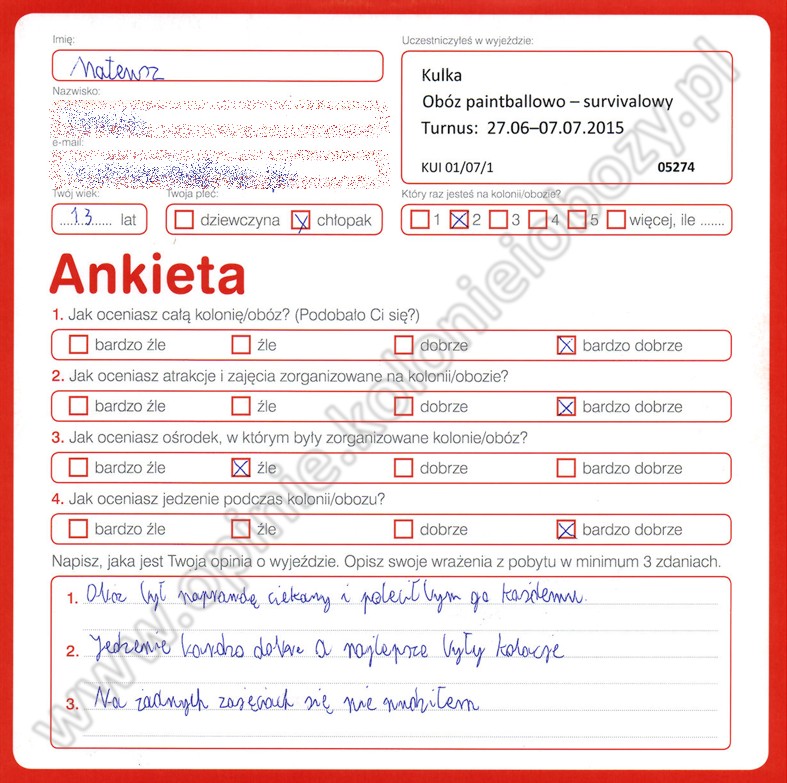 Imię:
Mateusz
Uczestniczyłeś w wyjeździe:
Kulka
Obóz paintballowo – survivalowy
Turnus: 27.06–07.07.2015
KUI 01/07/1 05274
Nazwisko:
e-mail:
Twój wiek:
13 lat
Twoja płeć:
dziewczyna chłopak
Który raz jesteś na kolonii/obozie?
1 2 3 4 5 więcej, ile .......
Ankieta
1. Jak oceniasz całą kolonię/obóz? (Podobało Ci się?)
bardzo źle źle dobrze bardzo dobrze
2. Jak oceniasz atrakcje i zajęcia zorganizowane na kolonii/obozie?
bardzo źle źle dobrze bardzo dobrze
3. Jak oceniasz ośrodek, w którym były zorganizowane kolonie/obóz?
bardzo źle źle dobrze bardzo dobrze
4. Jak oceniasz jedzenie podczas kolonii/obozu?
bardzo źle źle dobrze bardzo dobrze
Napisz, jaka jest Twoja opinia o wyjeździe. Opisz swoje wrażenia z pobytu w minimum 3 zdaniach.
1. Obóz był naprawdę ciekawy i polecił bym go każdemu.
2. Jedzenie bardzo dobre a najlepsze były kolacje
3. Na żadnych zajęciach się nie nudziłem
www.opinie.kolonieiobozy.pl